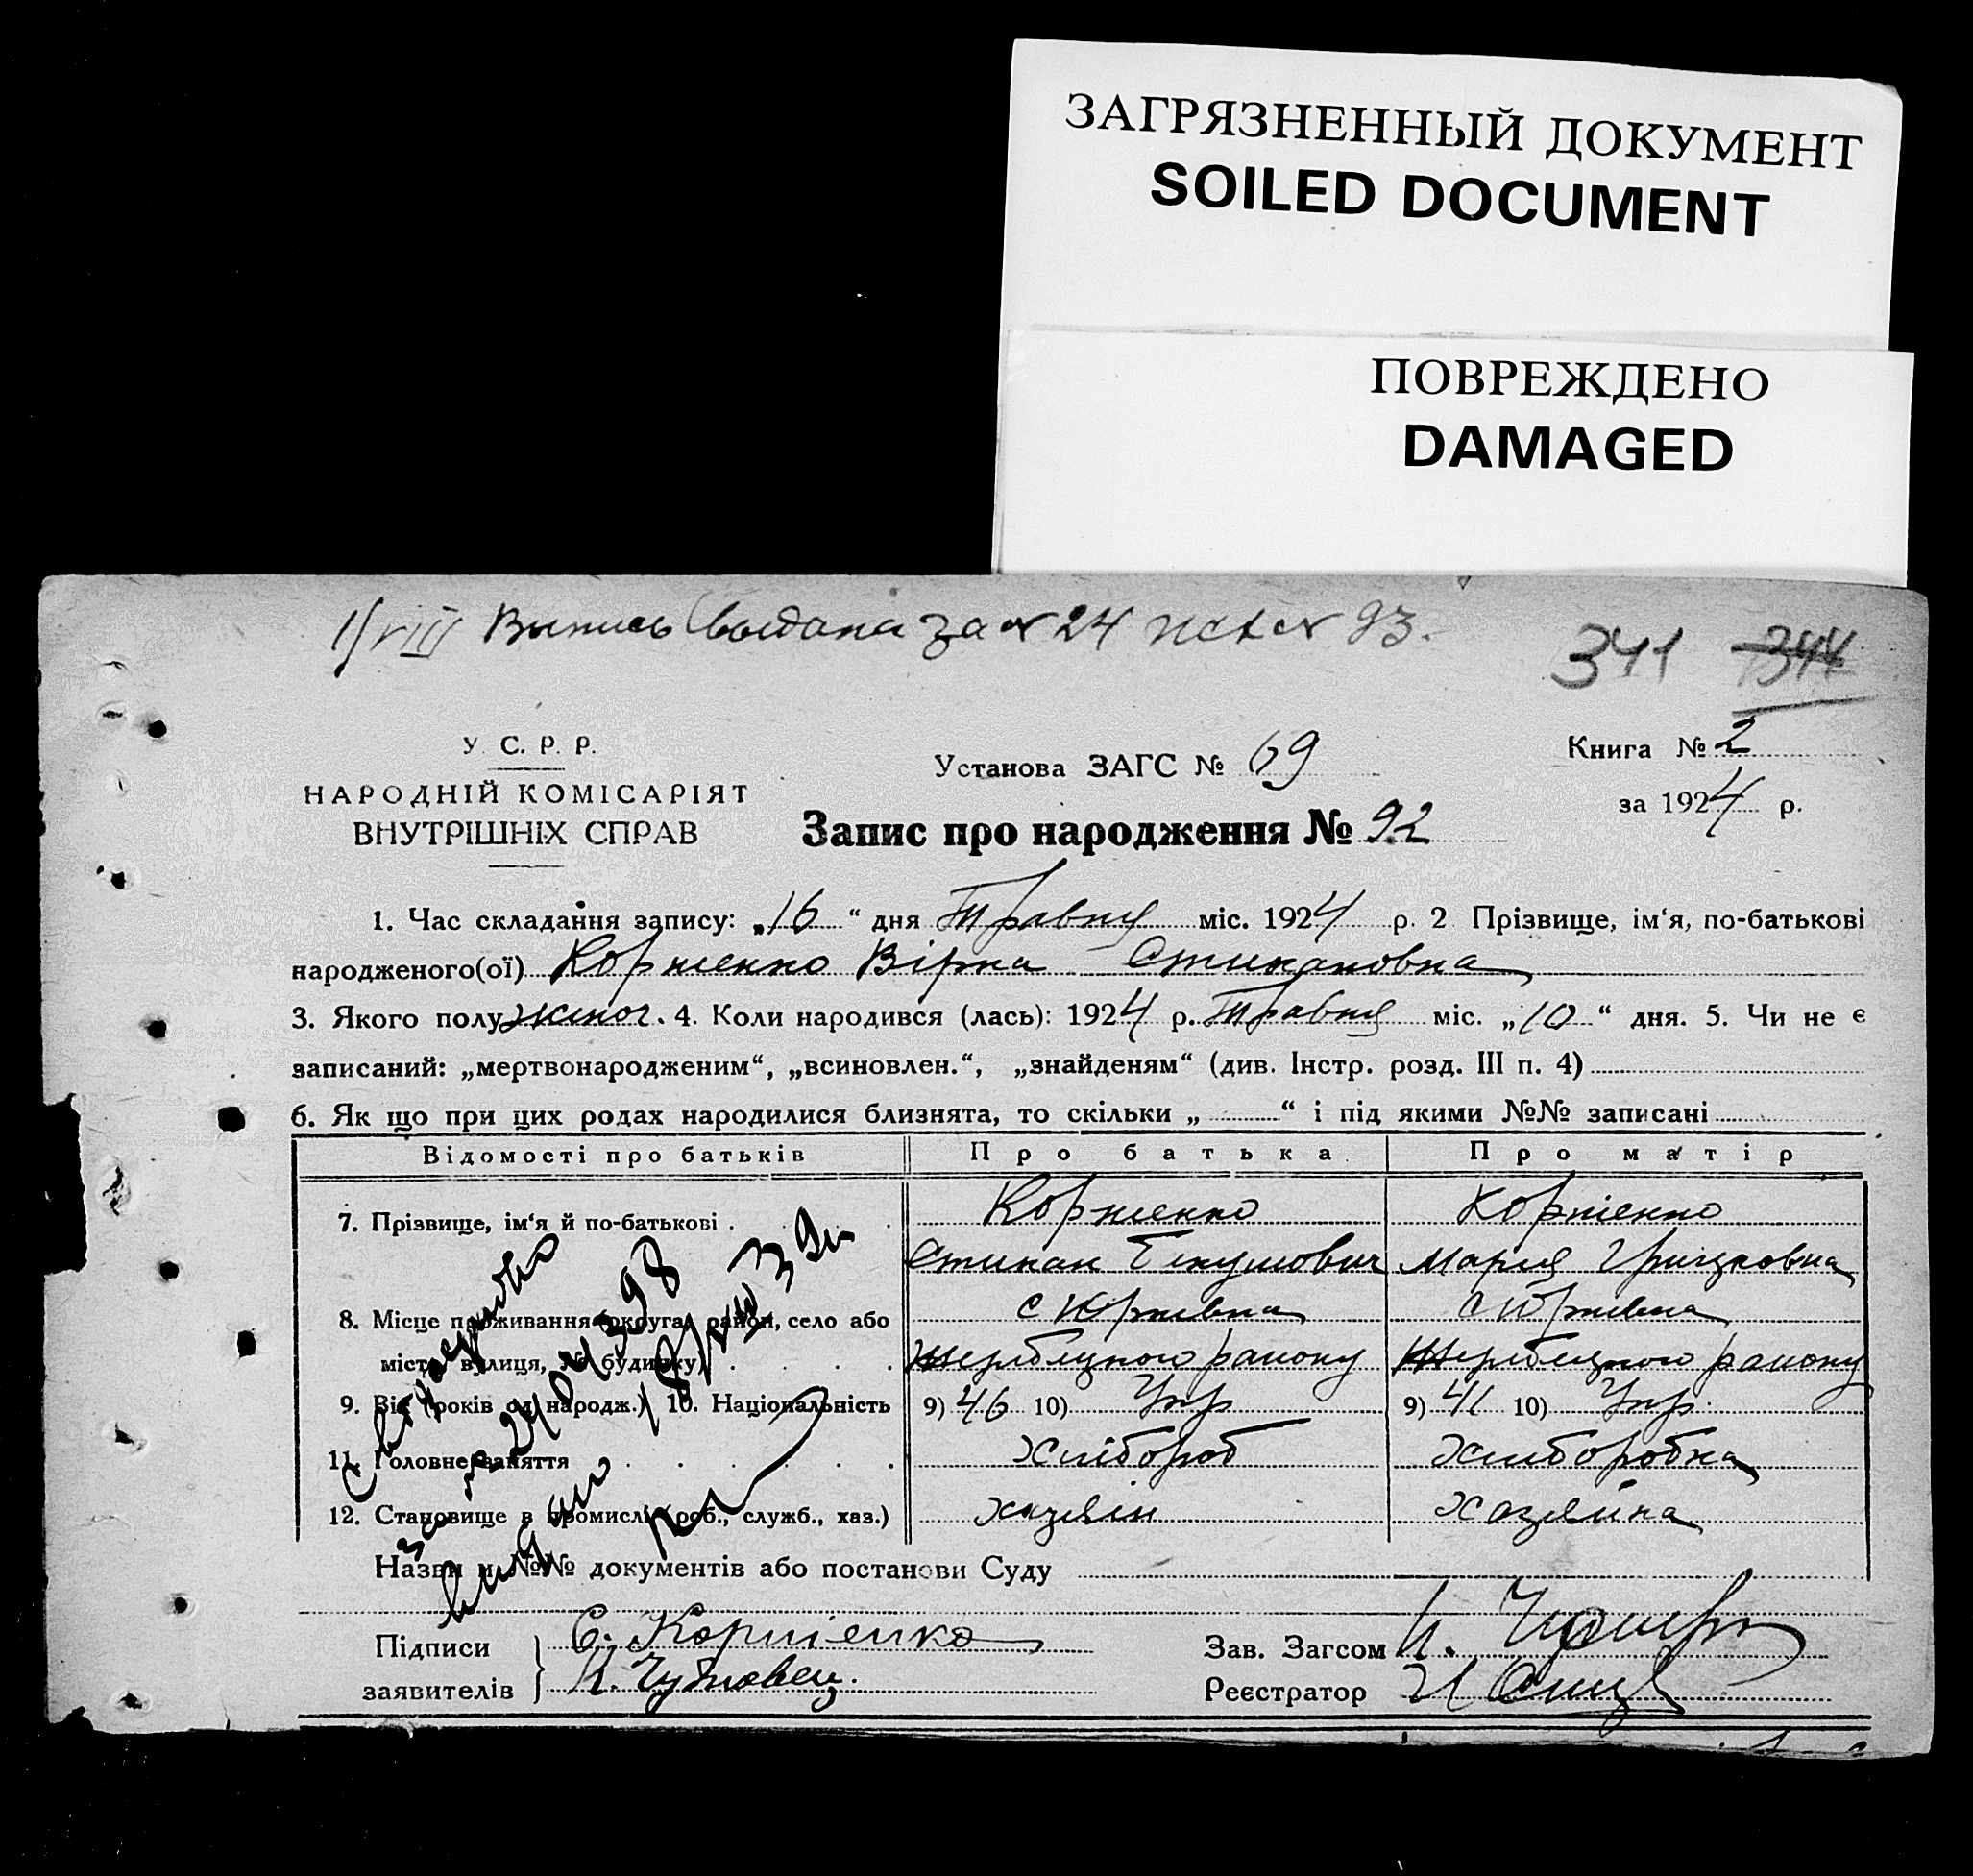 ЗАГРЯЗНЕННЫЙ ДОКУМЕНТ
SOILED DOCUMENT
ПОВРЕЖДЕНО
DAMAGED
1/VIII Выпись выдана за № 24 исх № 93.
341 344
У. С. Р. Р.
НАРОДНІЙ КОМІСАРІЯТ
ВНУТРІШНІХ СПРАВ
Установа ЗАГС № 69
Книга № 2
за 1924 р.
Запис про народження № 92
1. Час складання запису: „16“ дня Травня міс. 1924 р. 2 Прізвище, ім‘я, по-батькові
народженого(ої) Корниенко Вірка Стипановна
3. Якого полу жіноч. 4. Коли народився (лась): 1924 р. Травня міс. „10“ дня. 5. Чи не є
записаний: „мертвонародженим“, „всиновлен.“, „знайденям“ (див. Інстр. розд. III п. 4)
6. Як що при цих родах народилися близнята, то скільки „ “ і під якими №№ записані
Відомості про батьків Про батька Про матір
7. Прізвище, ім‘я й по-батькові Корниенко Корниенко
Стипан Мария Грицковна
8. Місце проживання (округа, район, село або с Юрківка с Юрківка
місто, вулиця, № будинку) району району
9. Вік (років од народж.) 10. Національність 9) 46 10) Укр 9) 41 10) Укр.
11. Головне заняття Хлібороб Хліборобка
12. Становище в промислі (роб., служб., хаз.) хазяін хазяйка
Назви и №№ документів або постанови Суду
Підписи С. Корниенко Зав. Загсом
заявителів Реєстратор